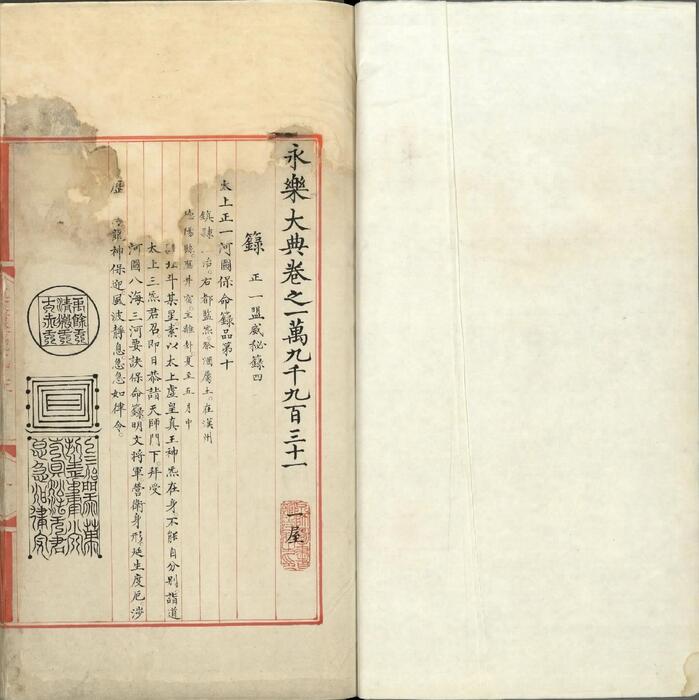 永樂大典卷之一萬九千九百三十一
一屋
籙
正一盟威秘籙四
太上正一河圖保命籙品第十
鎮隸
治。右都監炁。祭酒屬土。在漢州
德陽縣。屬井宿。主離卦。夏至五月中
北斗某星。素以太上虛皇真王神炁在身。不能自分別。詣道
太上三炁君召。即日恭詣天師門下。拜受
河圖八海三河要訣保命籙。明文將軍營衛身形。延生度厄。涉
歷
龍神保迎。風波靜息。急急如律令。